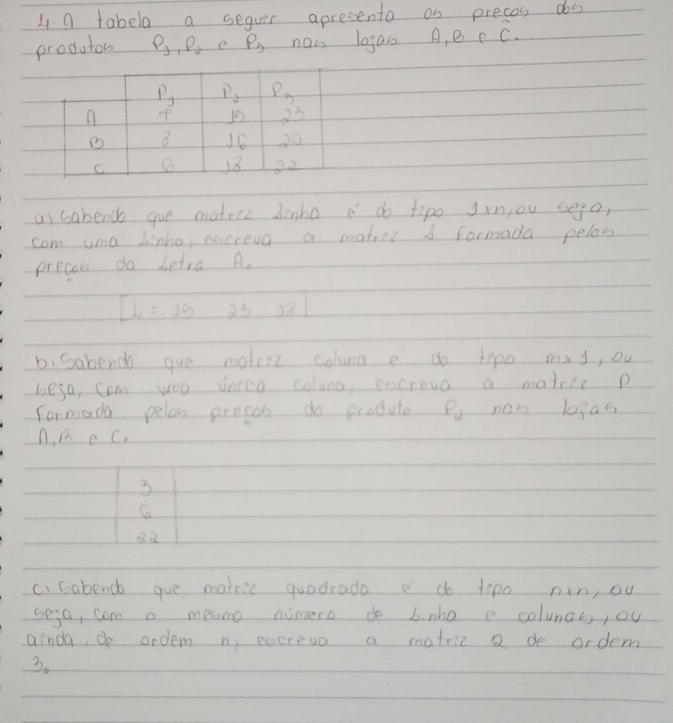 4. A tabela a seguir apresenta os preços dos
produtos P1, P2 e P3 nas lojas A, B e C.
P1 P2 P3
A 7 15 23
B 8 16 20
C 6 18 22
a) Sabendo que matriz linha é do tipo 1xn, ou seja,
com uma linha, escreva a matriz L formada pelos
preços da Letra A.
L = 15 23
b. Sabendo que matriz coluna é do tipo mx1, ou
seja, com uma única coluna, escreva a matriz P
formada pelos preços do produto nas lojas
A, B e C.
3
6
22
c. Sabendo que matriz quadrada é do tipo nxn, ou
seja, com o mesmo número de linha e colunas, ou
ainda, de ordem n, escreva a matriz Q de ordem
3.